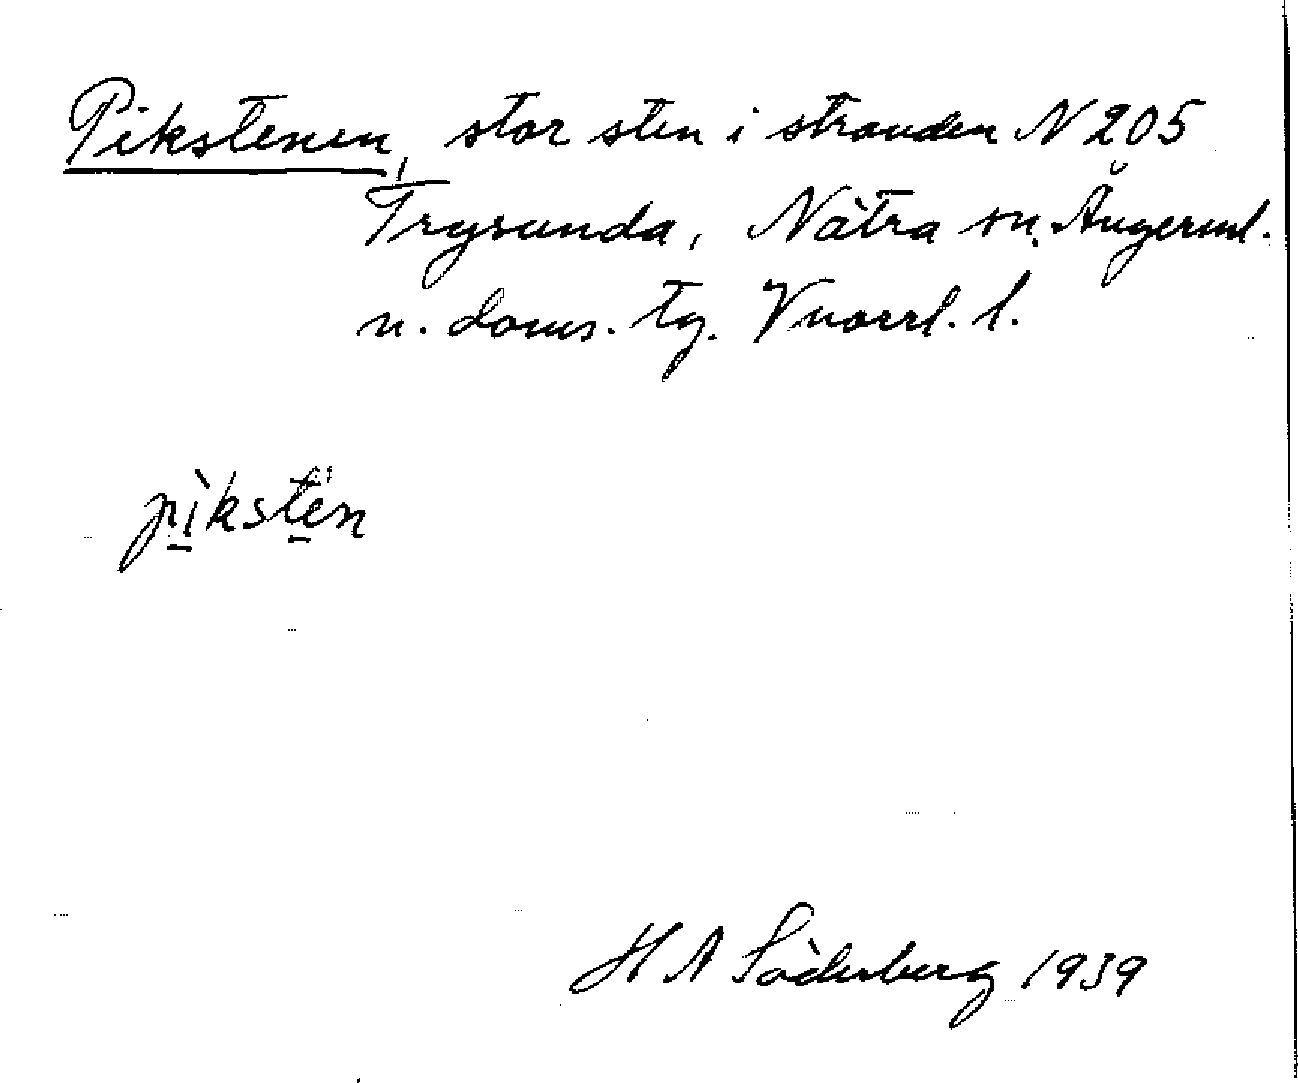 Pikstenen, stor sten i stranden N 205
Trysunda, Nätra sn. Ångerml.
n. doms. tg. Vnorrl. l.
pìkstèn
H A Söderberg 1939